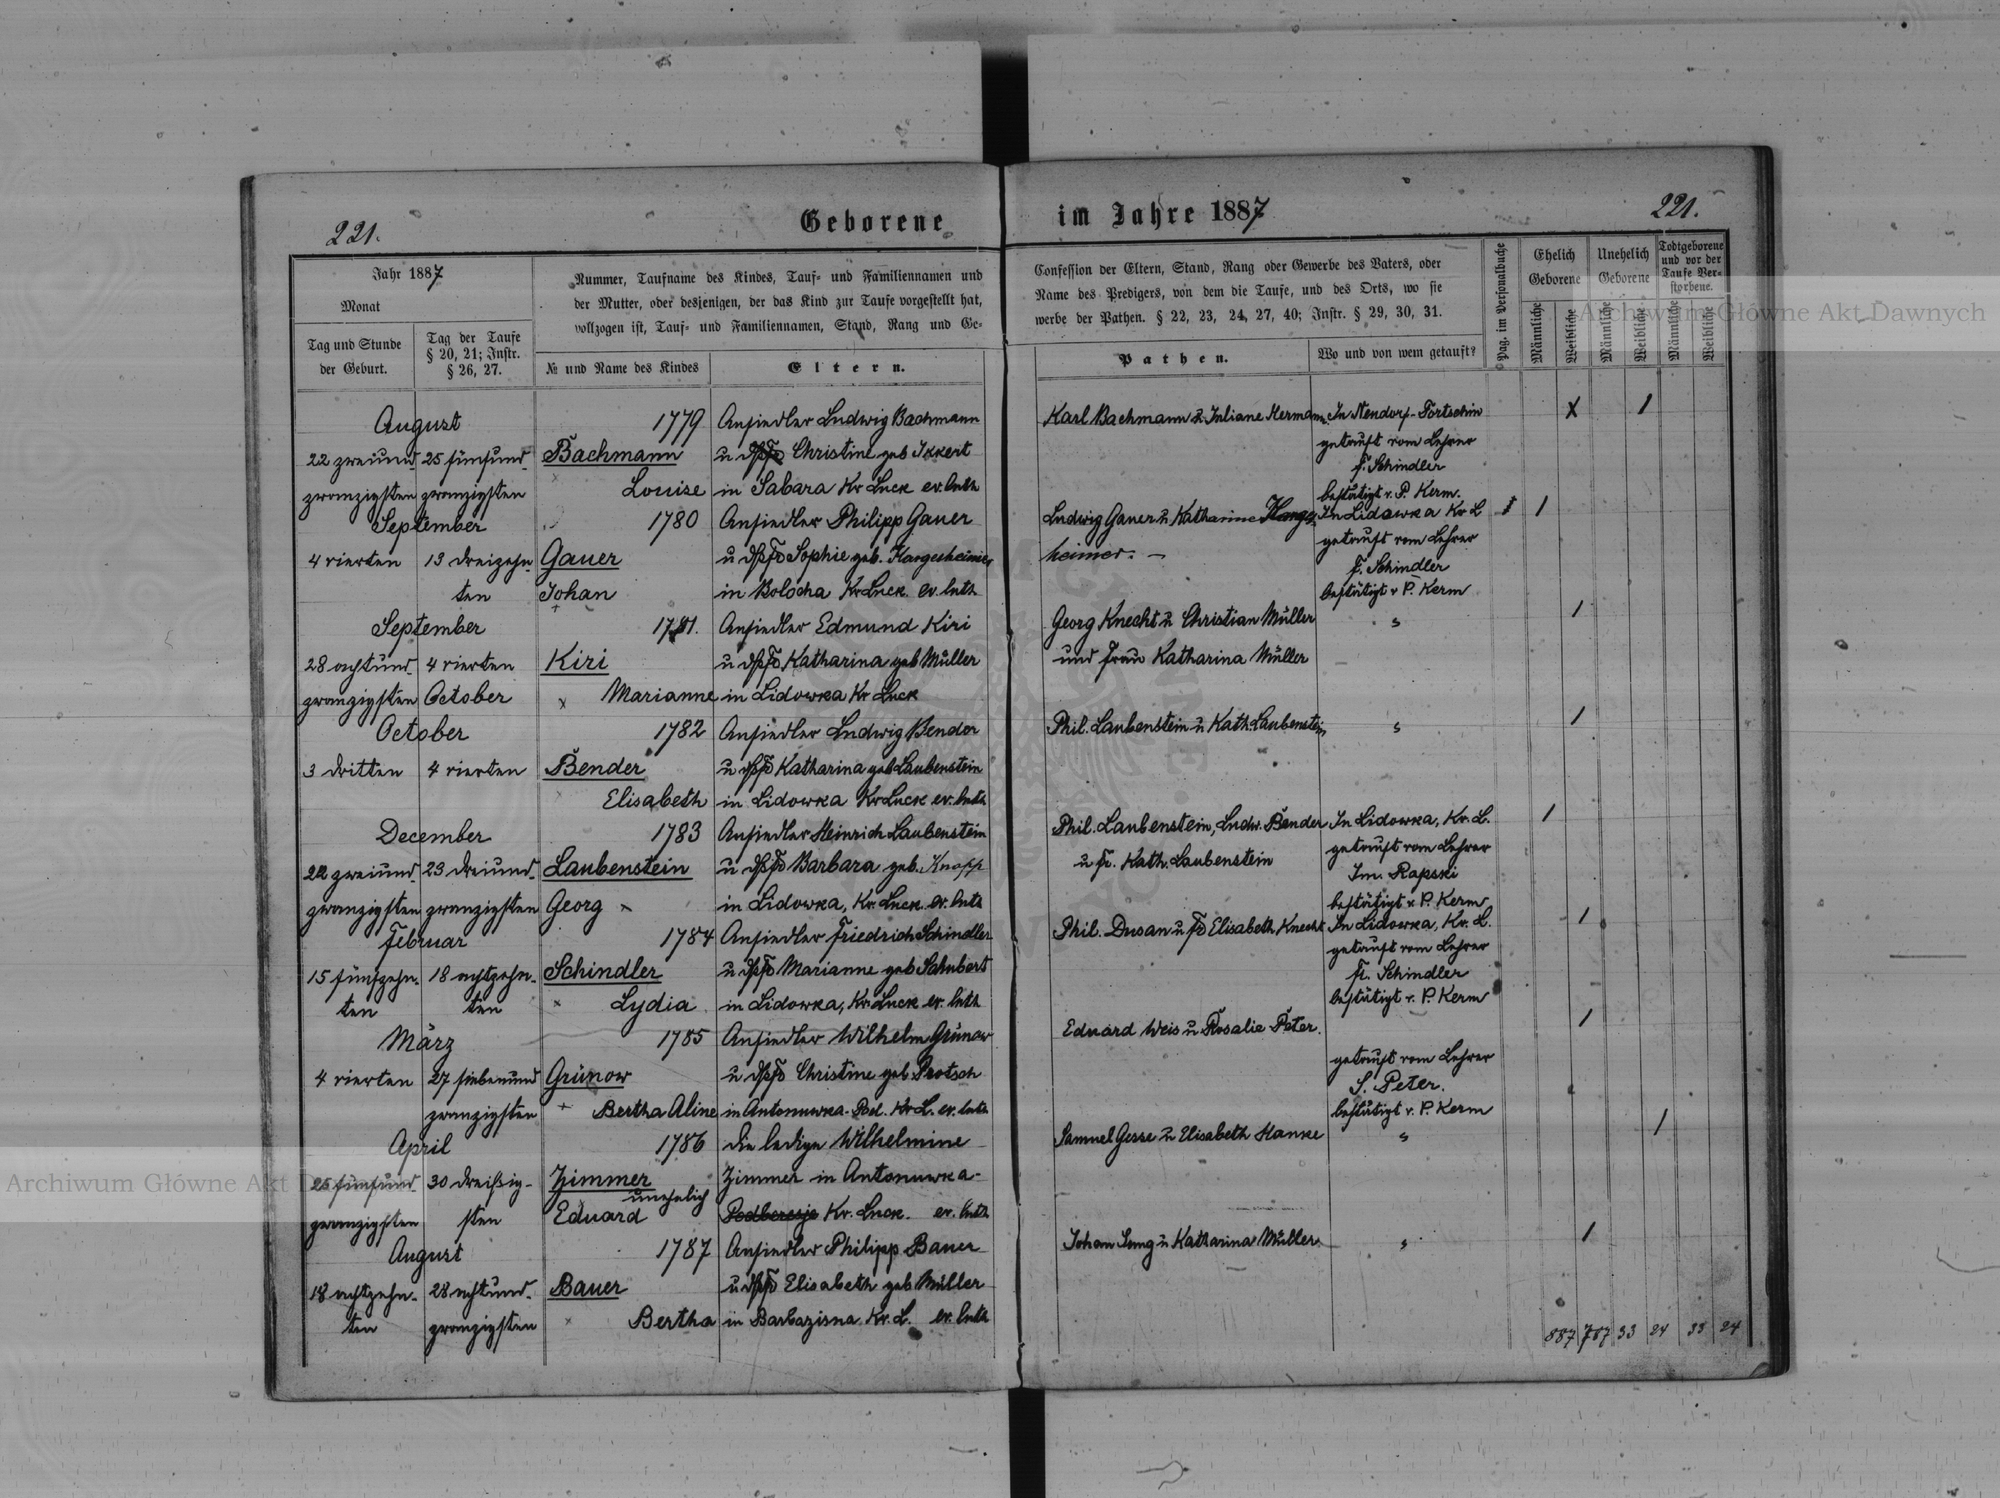 221.
Geborene
im Jahre 1887
221.
Jahr 1887
Monat
Tag und Stunde
der Geburt.
Tag der Taufe
§ 20, 21; Instr.
§ 26, 27.
Nummer, Taufname des Kindes, Tauf- und Familiennamen und
der Mutter, oder desjenigen, der das Kind zur Taufe vorgestellt hat,
vollzogen ist, Tauf- und Familiennamen, Stand, Rang und Ge-
№ und Name des Kindes
Eltern.
Confession der Eltern, Stand, Rang oder Gewerbe des Vaters, oder
Name des Predigers, von dem die Taufe, und des Orts, wo sie
werbe der Pathen. § 22, 23, 24, 27, 40; Instr. § 29, 30, 31.
Pathen.
Wo und von wem getauft?
Pag. im Personalbuche
Ehelich
Geborene
Unehelich
Geborene
Todtgeborene
und vor der
Taufe Ver-
storbene.
Männliche
Weibliche
Männliche
Weibliche
Männliche
Weibliche
August
22 zweiund-
zwanzigsten
25 fünfund-
zwanzigsten
1779
Bachmann
Louise
Ansiedler Ludwig Bachmann
u Christine geb Ikkert
in Sabara Kr Luck ev. luth
Karl Bachmann u. Juliane Hermann
In Neudorf-Tortschin
getauft vom Lehrer
F. Schindler
bestätigt v. P. Kerm.
September
4 vierten
13 dreizehn-
ten
1780
Gauer
Johan
Ansiedler Philipp Gauer
u dssFr Sophie geb. Hargesheimer
in Bolocha Kr Luck. ev. luth
Ludwig Gauer u Katharine Harges
heimer. —
In Lidawka Kr L
getauft vom Lehrer
F. Schindler
bestätigt v P. Kerm
September
28 achtund-
zwanzigsten
4 vierten
October
1781.
Kiri
Marianne
Ansiedler Edmund Kiri
u dssFr Katharina geb Müller
in Lidowka Kr Luck
Georg Knecht u Christian Müller
und Frau Katharina Müller
"
October
3 dritten
4 vierten
1782
Bender
Elisabeth
Ansiedler Ludwig Bender
u dssFr Katharina geb Laubenstein
in Lidowka Kr Luck ev. luth
Phil. Laubenstein u Kath. Laubenstein
"
December
22 zweiund-
zwanzigsten
23 dreiund-
zwanzigsten
1783
Laubenstein
Georg
Ansiedler Heinrich Laubenstein
u dssFr Barbara geb. Knapp
in Lidowka, Kr. Luck. ev. luth
Phil. Laubenstein, Ludw. Bender
u Fr. Kath. Laubenstein
In Lidowka, Kr. L.
getauft vom Lehrer
Im. Rapski
bestätigt v. P. Kerm
Februar
15 fünfzehn-
ten
18 achtzehn-
ten
1784
Schindler
Lydia
Ansiedler Friedrich Schindler
u dssFr Marianne geb Schubert
in Lidowka, Kr. Luck ev. luth
Phil. Dusan u Fr Elisabeth Knecht
In Lidowka, Kr. L.
getauft vom Lehrer
Fr. Schindler
bestätigt v. P. Kerm
März
4 vierten
27 siebenund
zwanzigsten
1785
Grünow
Bertha Aline
Ansiedler Wilhelm Grünow
u dssFr Christine geb. Protsch
in Antonuwka-Pod. Kr. L. ev. luth
Eduard Weis u Rosalie Peter.
getauft vom Lehrer
S. Peter.
bestätigt v. P. Kerm
April
25 fünfund-
zwanzigsten
30 dreißig-
sten
1786
Zimmer
unehelich
Eduard
die ledige Wilhelmine
Zimmer in Antonuwka-
Podberesje Kr. Luck. ev. luth
Samuel Gesse u Elisabeth Hanke
"
August
18 achtzehn-
ten
28 achtund-
zwanzigsten
1787
Bauer
Bertha
Ansiedler Philipp Bauer
u dssFr Elisabeth geb Müller
in Barbazisna. Kr. L. ev. luth
Johan Lang u Katharina Müller
"
887 787 33 24 33 24
Archiwum Główne Akt Dawnych
Archiwum Główne Akt Dawnych